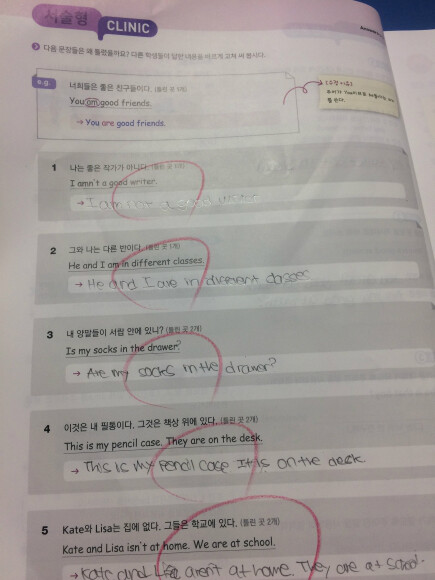 서술형 CLINIC
다음 문장들은 왜 틀렸을까요? 다른 학생들이 답한 내용을 바르게 고쳐 써 봅시다.
e.g.
너희들은 좋은 친구들이다. (틀린 곳 1개)
You am good friends.
→ You are good friends.
1 나는 좋은 작가가 아니다. (틀린 곳 1개)
I amn't a good writer.
→ I am not a good writer.
2 그와 나는 다른 반이다. (틀린 곳 1개)
He and I am in different classes.
→ He and I are in different classes
3 내 양말들이 서랍 안에 있니? (틀린 곳 2개)
Is my socks in the drawer?
→ Are my socks in the drawer?
4 이것은 내 필통이다. 그것은 책상 위에 있다. (틀린 곳 2개)
This is my pencil case. They are on the desk.
→ This is my pencil case It is on the desk
5 Kate와 Lisa는 집에 없다. 그들은 학교에 있다. (틀린 곳 2개)
Kate and Lisa isn't at home. We are at school.
→ Kate and Lisa aren't at home. They are at school.